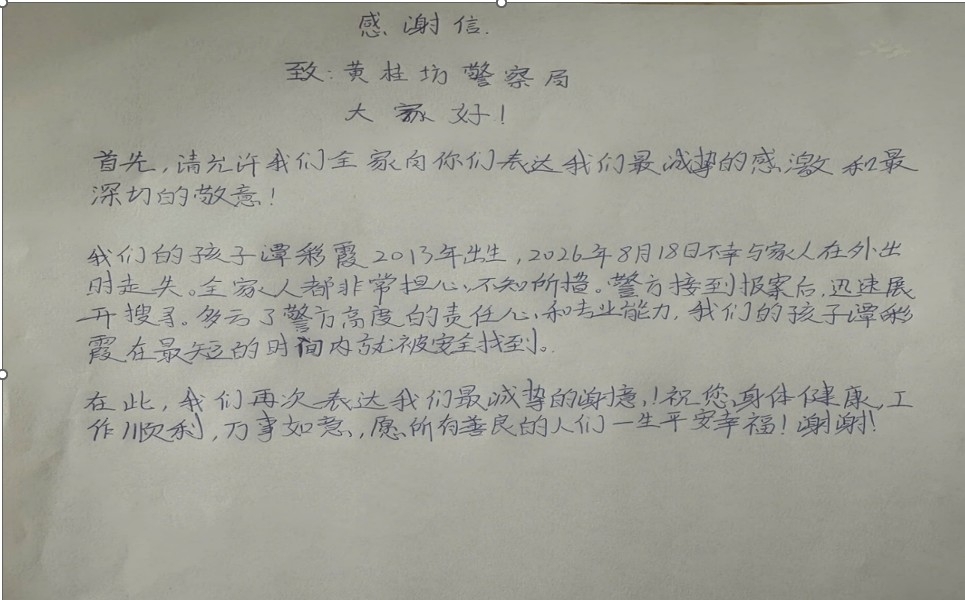 感谢信.
致:黄桂坊警察局
大家好!
首先,请允许我们全家向你们表达我们最诚挚的感激和最
深切的敬意!
我们的孩子谭彩霞2013年出生,2026年8月18日不幸与家人在外出
时走失。全家人都非常担心,不知所措。警方接到报案后,迅速展
开搜寻。多亏了警方高度的责任心和专业能力,我们的孩子谭彩
霞在最短的时间内就被安全找到。
在此,我们再次表达我们最诚挚的谢意!祝您身体健康,工
作顺利,万事如意,愿所有善良的人们一生平安幸福!谢谢!